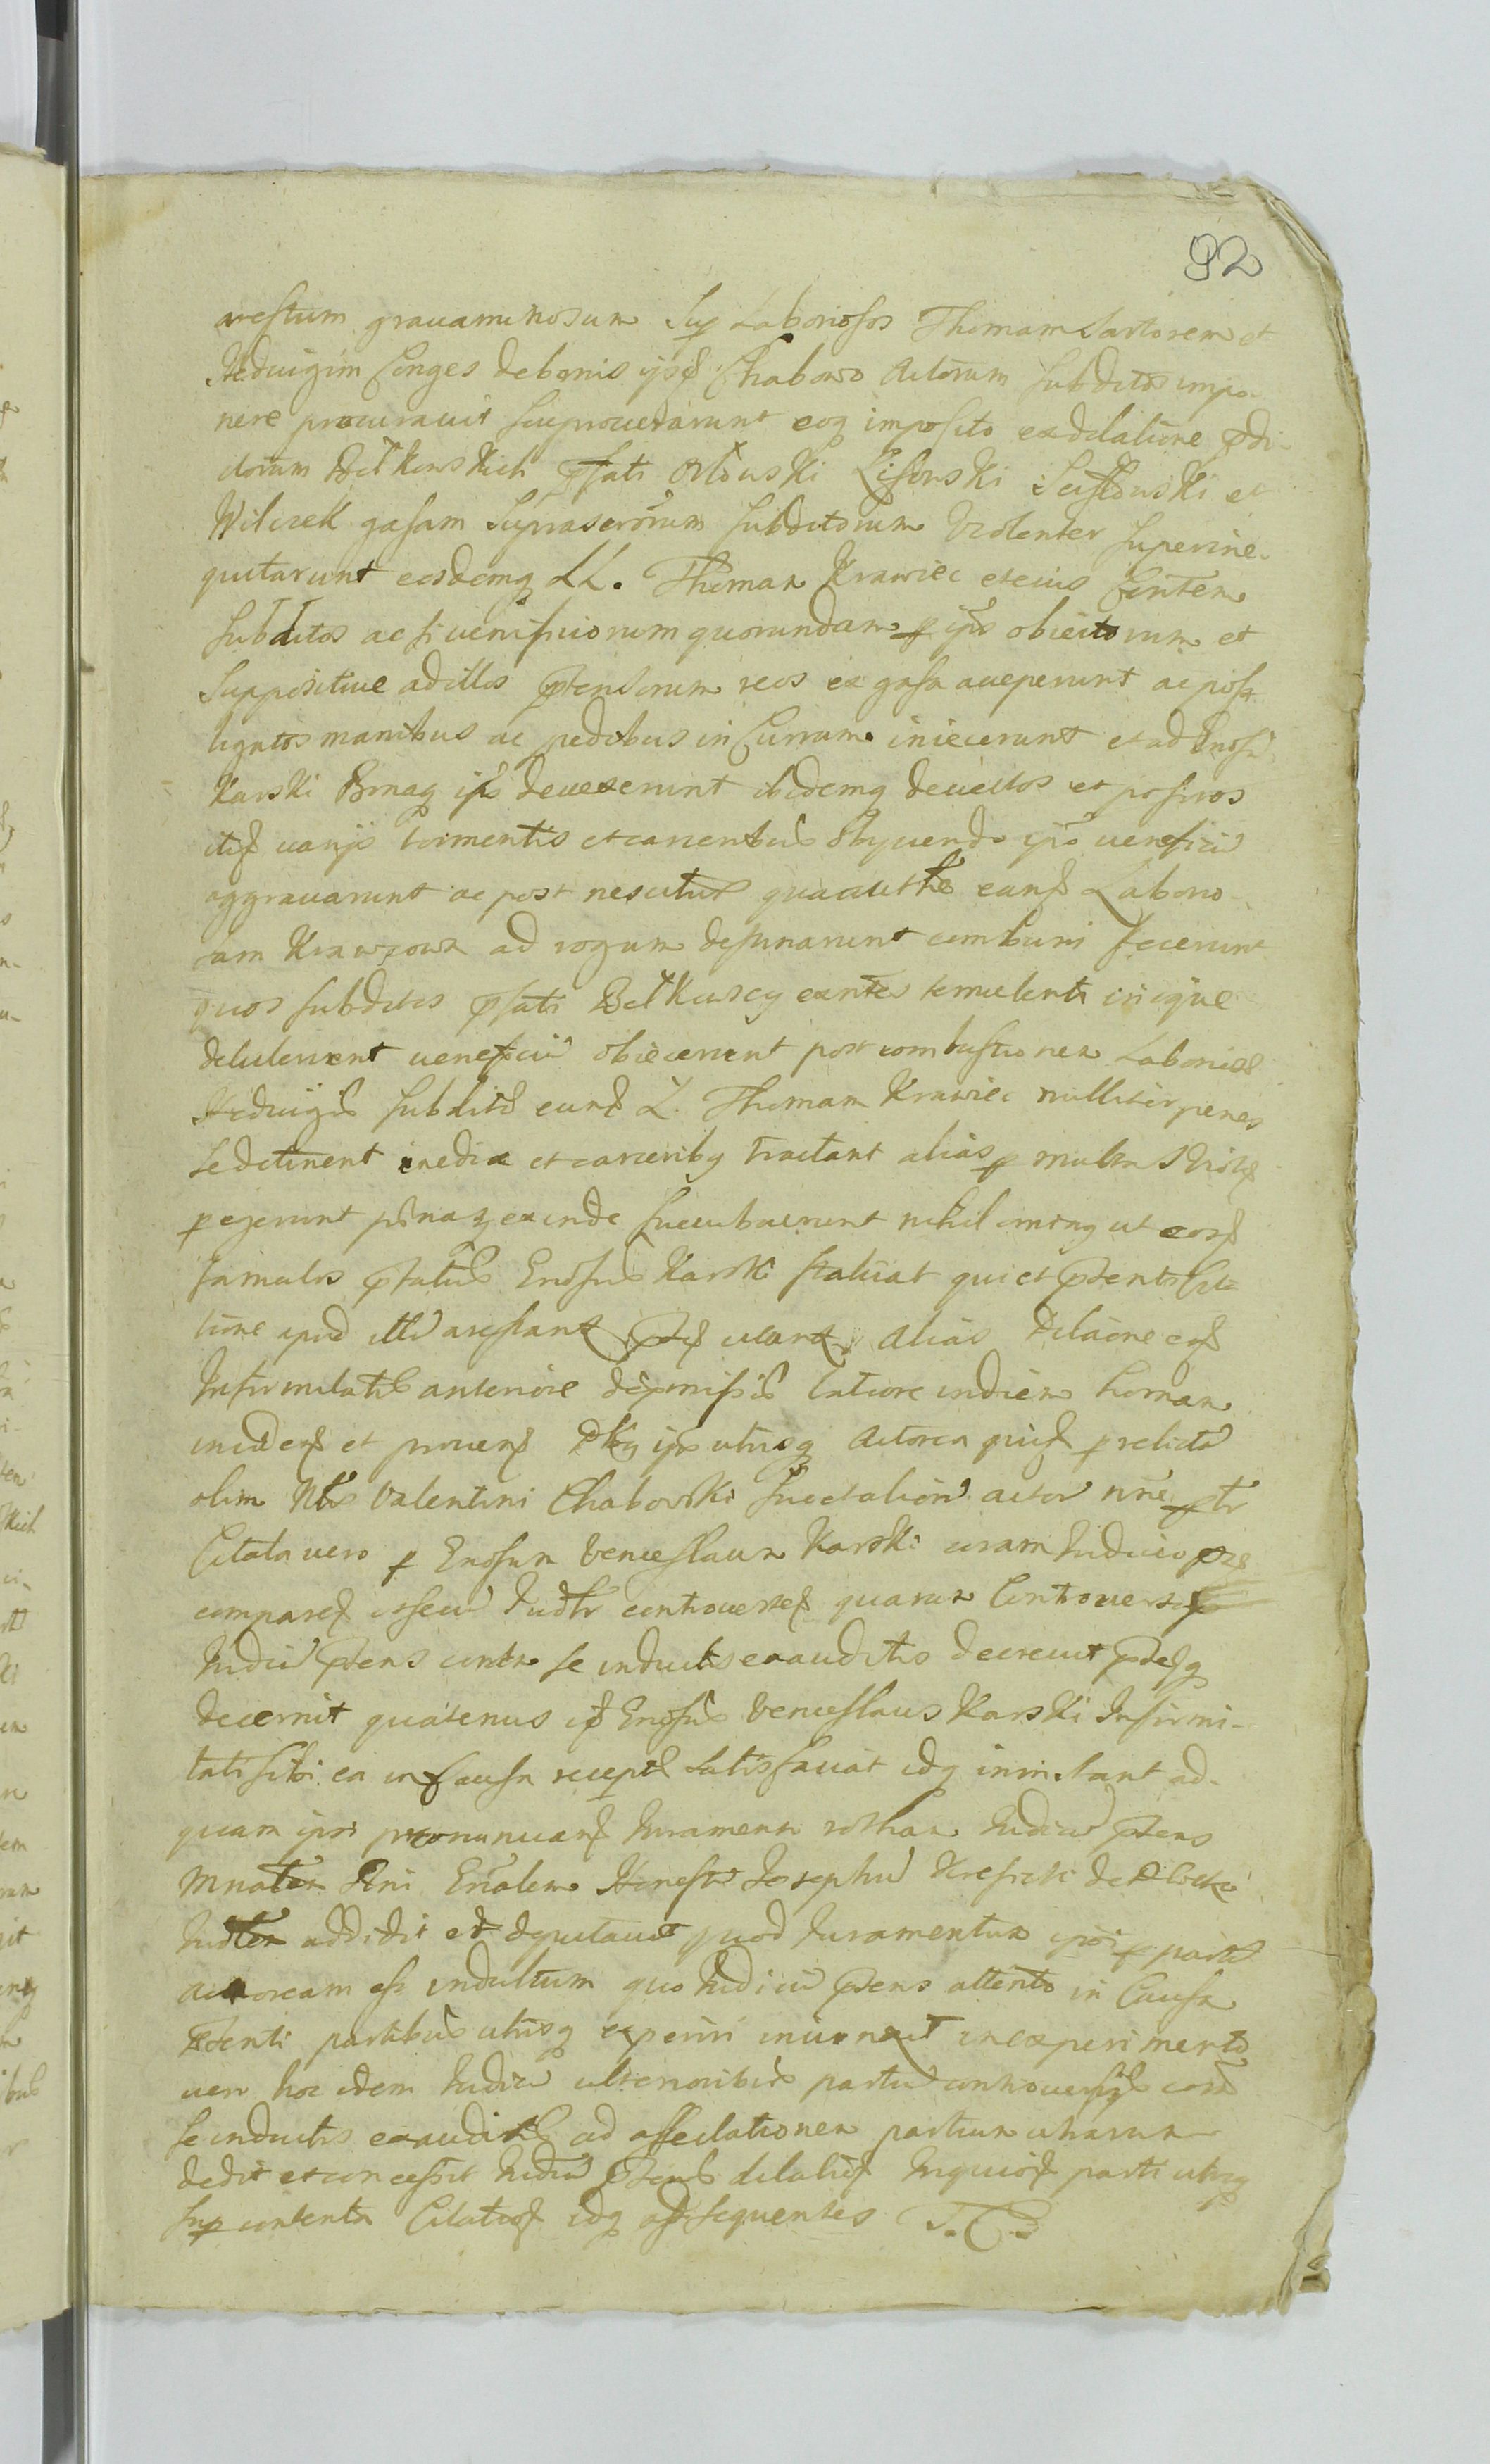 92
arestum grauaminosum Sup Laboriosos Thomam Sartorem et
Heduigim Conges de bonis ijsd Chabowo Actorum subditos impo-
nere procurauit seu procurarunt eoq imposito ex delatione pdi-
ctorum Betkowskich pfati Orłowski Lisowski et
Wilczek gasam Suprascrorum subditorum Violenter superine-
quitarunt eosdemq LL. Thomam Krawiec et eius Conten
subditos ac si ueneficiorum quorundam p ipos obiectorum et
suppositiue ad illos ptensorum reos ex gasa acceperunt ac post
ligatos manibus ac pedibus in Currum iniecerunt et ad Enosu
Karski Bonaq ips deuexerunt ibidemq deuectos et positos
itid uarijs tormentis et carceribus Obijciendo ips ueneficiu
aggrauarunt ac post nescitur qua authte eand Laborio-
am Krawcowa ad rogum destinarunt comburi fecerunt
quos subditos pfati Betkuscy exntes temulenti inique
detulerunt ueneficiu obiecerunt post combustionem Laboriose
Heduigis subditi eund L. Thomam Krawiec nulliter penes
se detinent inedia et carceribq tractant alias p multa Viole
pegerunt penasq exinde succubuerunt nihil ominq ut eosd
famulos pfatus Enosus Karski statuat qui et pnti Cita-
tione apud illu arestant Alias Dilaone eod
Infirmitatis anteriore depmissis latiore in diem hornam
incidend et prouend Pbq ips utrisq Actorea quid p relictam
olim Nbis Valentini Chabowski actor nne ptr
Citata uero p Enosum Venceslaum Karski coram Judicio pnt
compared Judtr controuersed quarum Controuersijs
Judiciu pens contra se inductis exauditis decreuit pntq
decernit quatenus id Enosus Venceslaus Karski Infirmi-
tati sibi ea in Causa recepte satisfaciat idq in instanti ad
quam ipsi pronunciand Juramenti rotham Judiciu pens
Mnalem Rni Enalem Honestu Josephu de
addidit et deputauit quod Juramentum ipsi p partem
actoream est indultum quo Judiciu pens attento in Causa
pnti partibus utrisq experiri iniunxit in experimento
uero hoc idem Judiciu ulterioribus partiu controuersijs cora
se inductis exauditis ad affectationem partium utrarum
dedit et concessit Judiciu pens dilationd Inquisid parti utriq
sup contenta Citationd idq ad sequentes T.